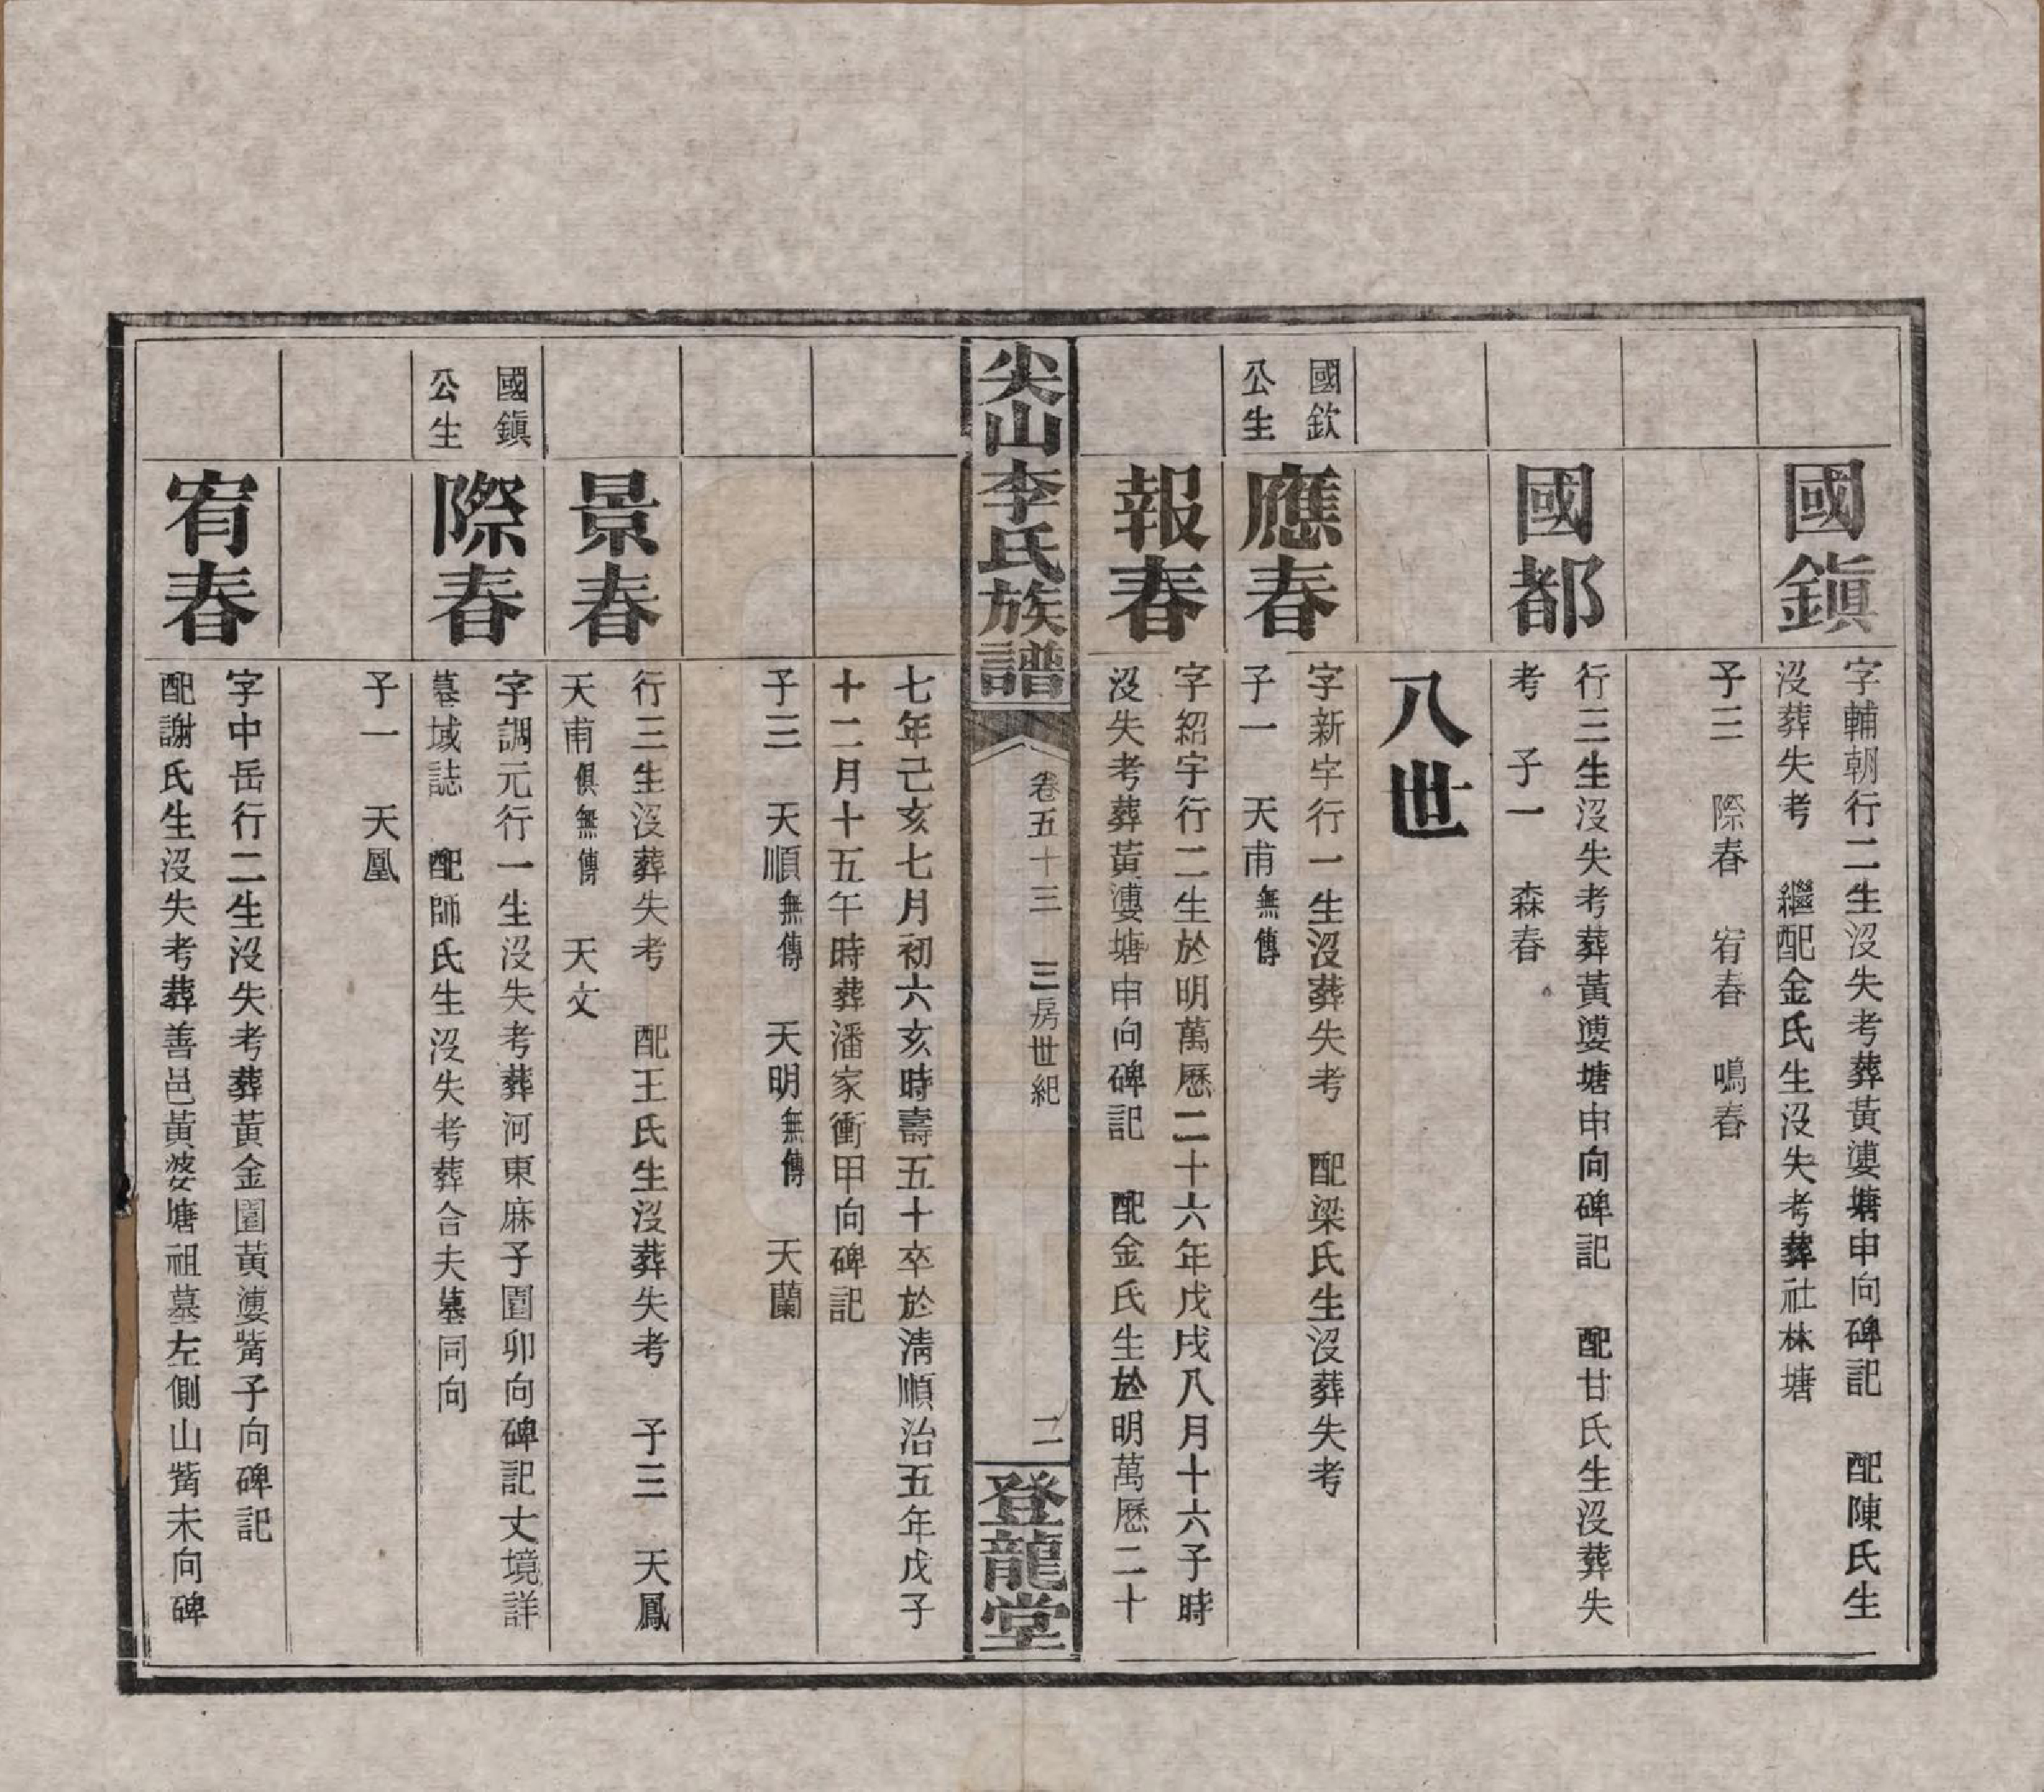 國鎭
字輔朝行二生沒失考葬黃漊塘申向碑記　配陳氏生
沒葬失考　繼配金氏生沒失考葬社林塘
子三　際春　宥春　鳴春
國都
行三生沒失考葬黃漊塘申向碑記　配甘氏生沒葬失
考　子一　森春
八世
國欽
公生
應春
字新字行一生沒葬失考　配梁氏生沒葬失考
子一　天甫無傳
報春
字紹宇行二生於明萬歷二十六年戊戌八月十六子時
沒失考葬黃漊塘申向碑記　配金氏生於明萬歷二十
尖山李氏族譜
卷五十三　三房世紀
二
登龍堂
七年己亥七月初六亥時壽五十卒於淸順治五年戊子
十二月十五午時葬潘家衝甲向碑記
子三　天順無傳　天明無傳　天蘭
景春
行三生沒葬失考　配王氏生沒葬失考　子三　天鳳
天甫俱無傳　天文
國鎭
公生
際春
字調元行一生沒失考葬河東麻子園卯向碑記丈境詳
墓域誌　配師氏生沒失考葬合夫墓同向
子一　天凰
宥春
字中岳行二生沒失考葬黃金園黃漊觜子向碑記
配謝氏生沒失考葬善邑黃婆塘祖墓左側山觜未向碑